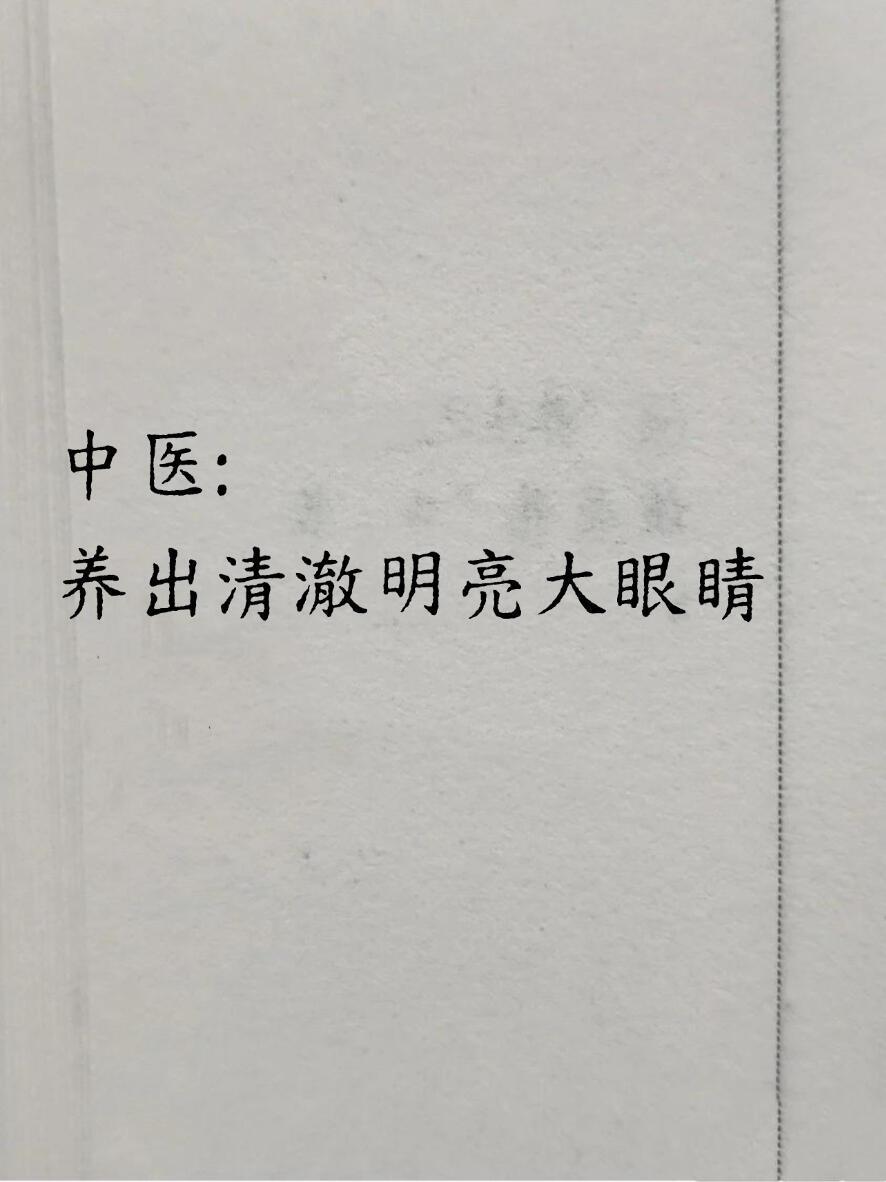 中医:
养出清澈明亮大眼睛